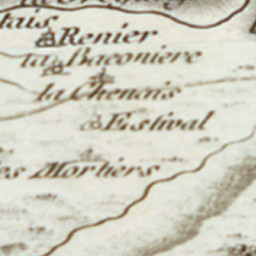 tais
Renier
la Baconiere
la Chenais
Estival
es Mortiers